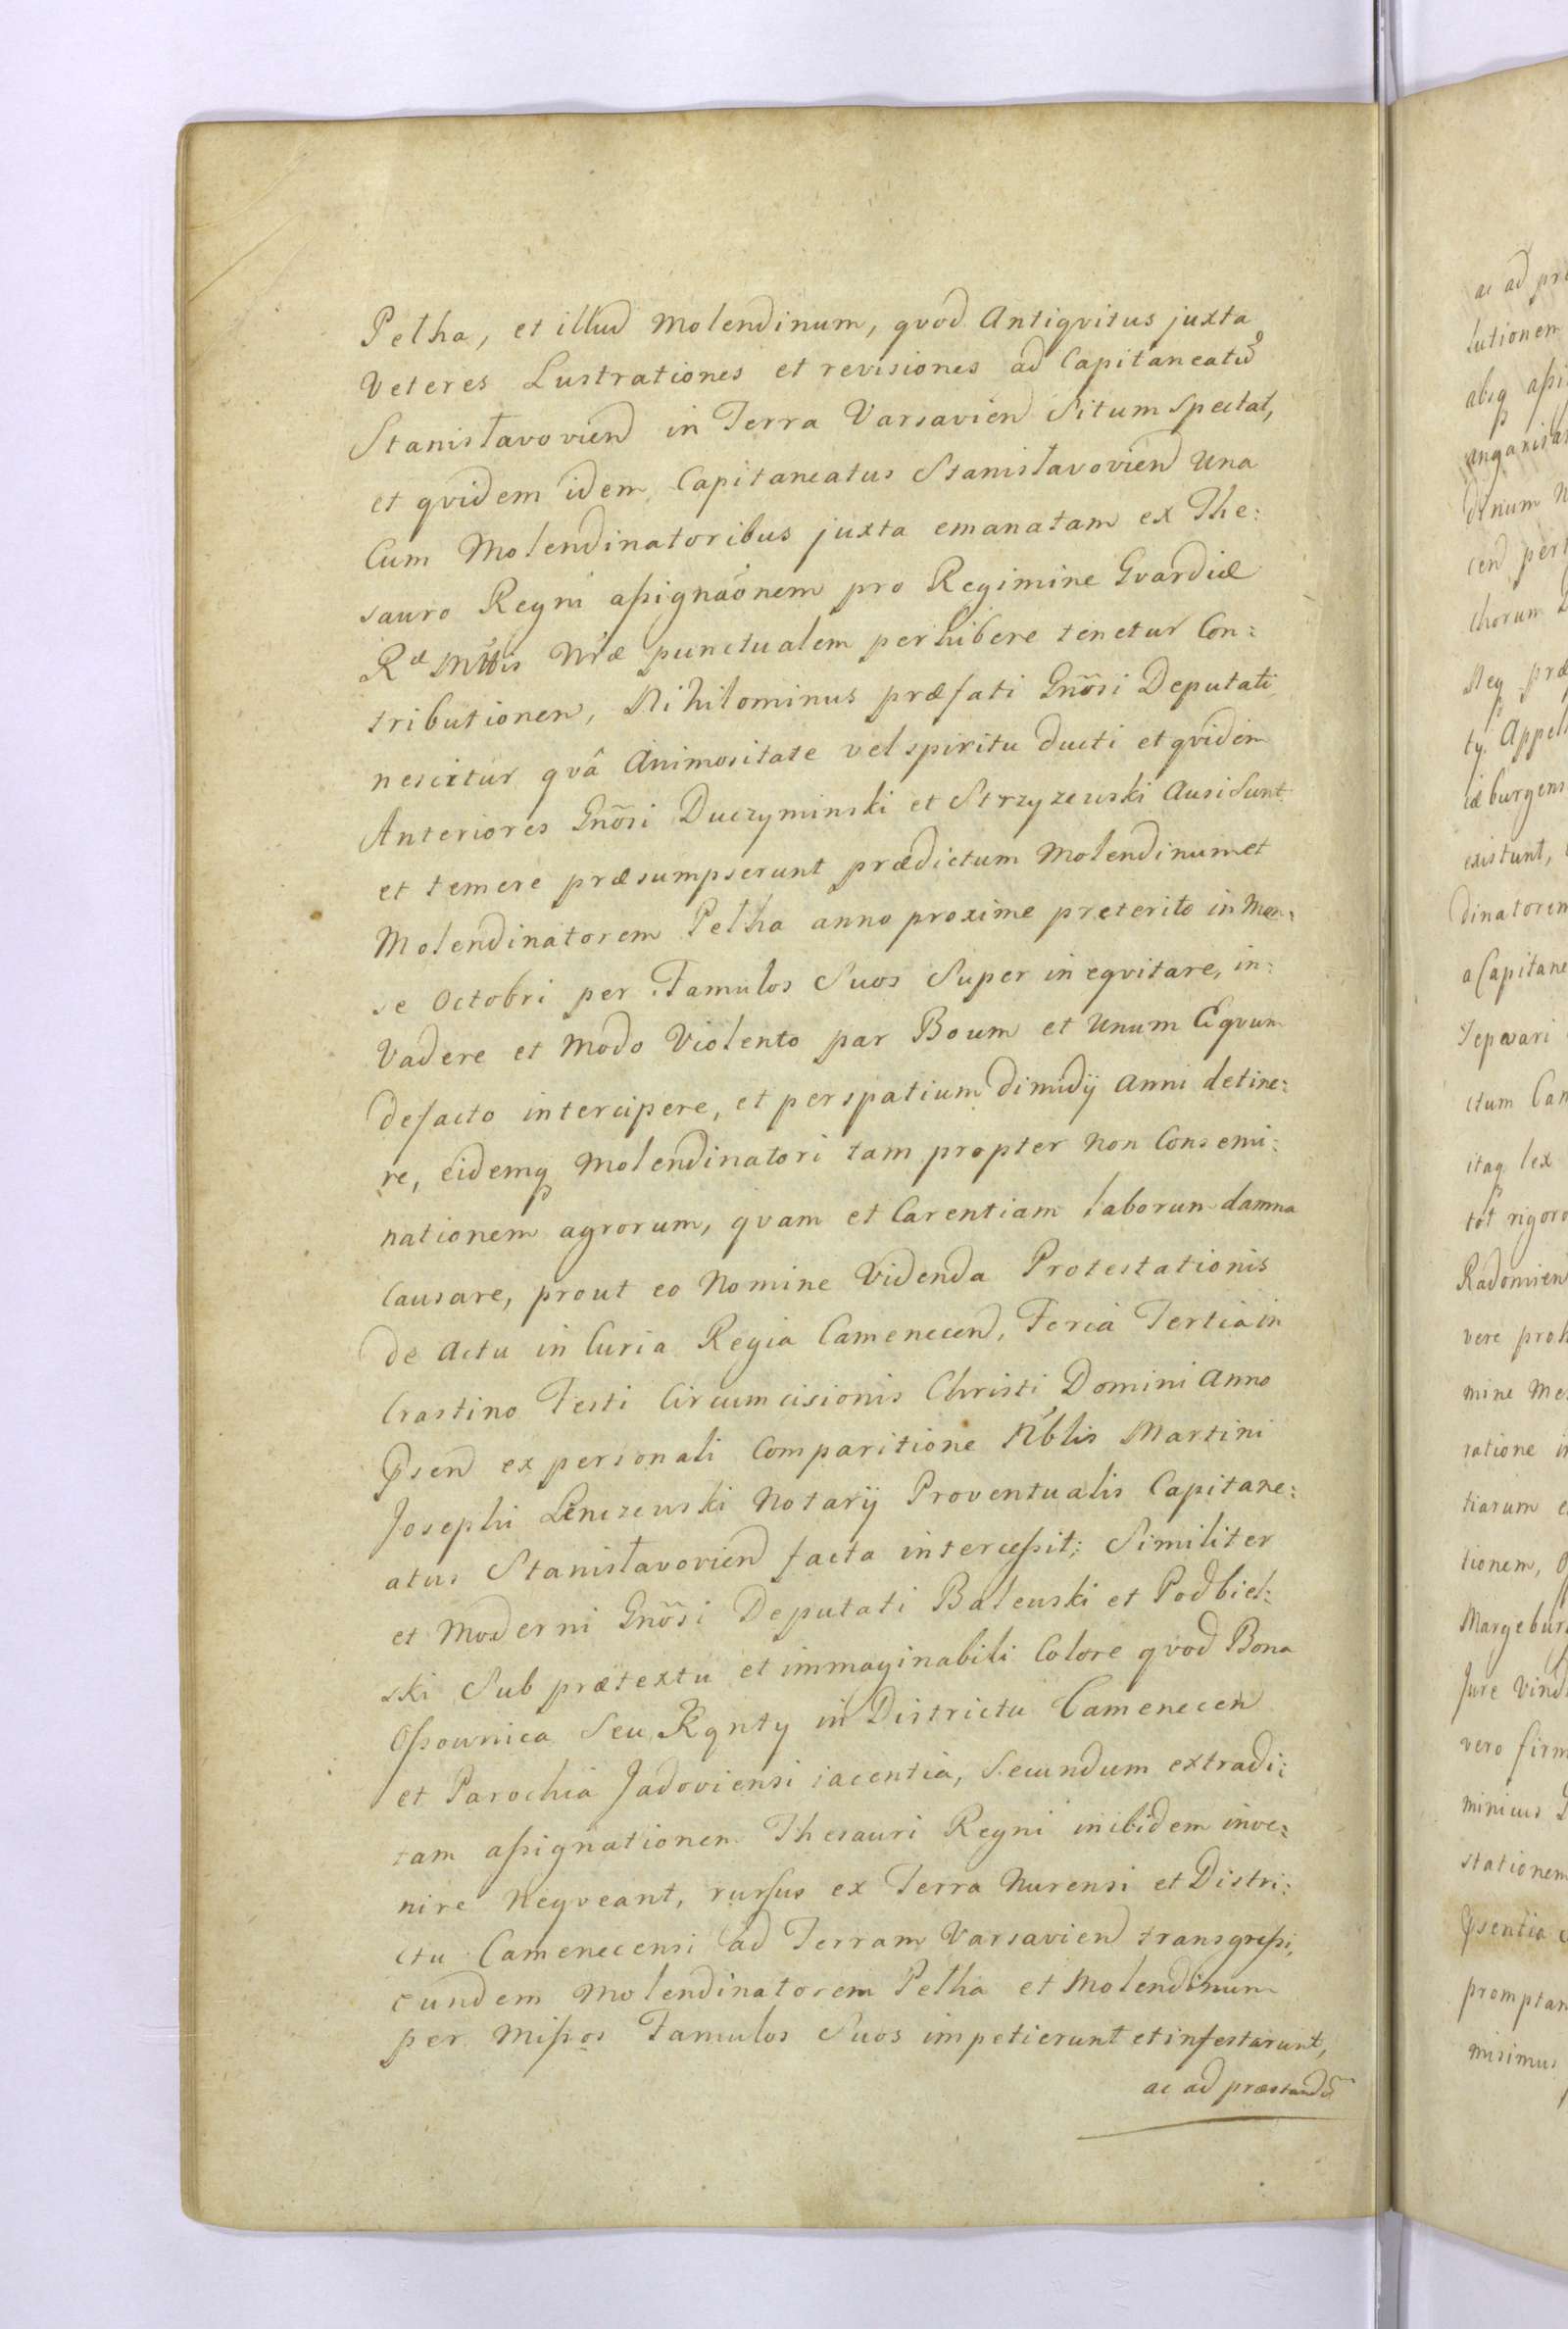 Pełha, et illud Molendinum, qvod Antiqvitus juxta
Veteres Lustrationes et revisiones ad Capitaneatū
Stanisławovien̄ in Terra Varsavien̄ Situm Spectat,
et qvidem idem Capitaneatus Stanisławovien̄ Una
Cum Molendinatoribus juxta emanatam ex The:
sauro Regni aßignaōnem pro Regimine Gvardiæ
Ræ Mttis Nræ punctualem perhibere tenetur Con:
tributionem, Nihilominus præfati Gnōsi Deputati
nescitur qvâ Animositate vel spiritu ducti et qvidem
Anteriores Gnōsi Duczyminski et Strzyzewski Ausi Sunt
et temere præsumpserunt prædictum Molendinum et
Molendinatorem Pełha anno proxime preterito in Men:
se Octobri per Famulos Suos Super in eqvitare, in:
Vadere et Modo Violento par Boum et Unum Eqvum
defacto intercipere, et per spatium dimidÿ Anni detine:
re, eidemq̨ Molendinatori tam propter Non Consemi:
nationem agrorum, qvam et Carentiam laborum damna
Causare, prout eo Nomine Videnda Protestationis
de Actu in Curia Regia Camenecen̄, Feria Tertia in
Crastino Festi Circumcisionis Christi Domini Anno
p̄sen̄ ex personali Comparitione N̄blis Martini
Josephi Lenczewski Notarÿ Proventualis Capitane:
atus Stanisławovien̄ facta interceßit; Similiter
et Moderni Gnōsi Deputati Balewski et Podbiel:
ski Sub prætextu et immaginabili Colore qvod Bona
Oßownica Seu Kąnty in Districtu Camenecen̄
et Parochia Jadoviensi iacentia, Secundum extradi:
tam aßignationem Thesauri Regni inibidem inve:
nire Neqveant, rursus ex Terra Nurensi et Distri:
ctu Camenecensi ad Terram Varsavien̄ transgreßi,
eundem Molendinatorem Pełha et Molendinum
per Mißos Famulos Suos impetierunt et infestarunt,
ac ad præstandā
ac ad
lutionem
absq̨
dinum
cen̄
chorum
Neq̨
existunt,
dinatorem
a Capitane
ctum
itaq̨ lex
tot rigoro
Radomien
vere proh
mine Me
ratione
tiarum
tionem,
Margebur
Jure Vind
vero firm
minicus
stationem
p̄sentia
promptam
misimus